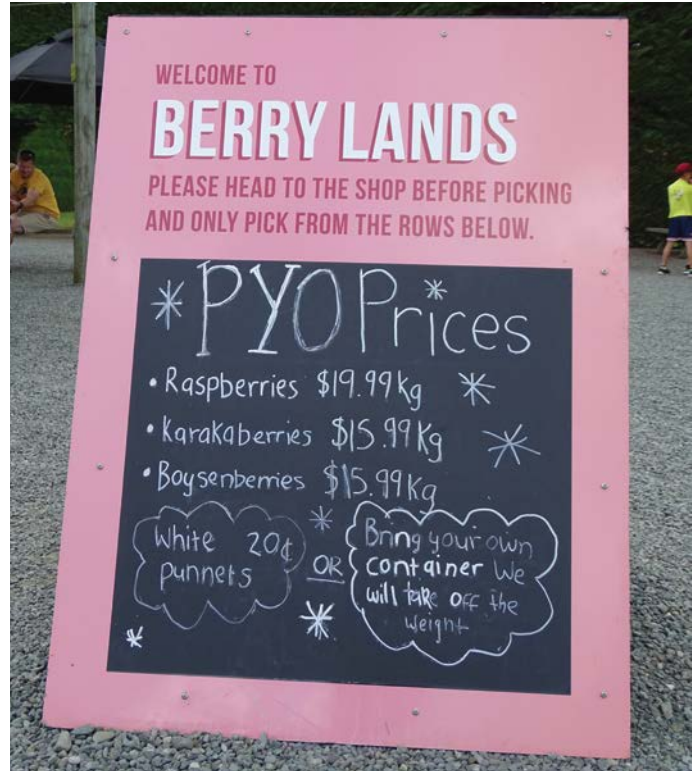 WELCOME TO
BERRY LANDS
PLEASE HEAD TO THE SHOP BEFORE PICKING
AND ONLY PICK FROM THE ROWS BELOW.
PYO Prices
• Raspberries $19.99kg
• Karakaberries $15.99Kg
• Boysenberries $15.99Kg
White 20¢
punnets
OR
Bring your own
container We
will take off the
weight